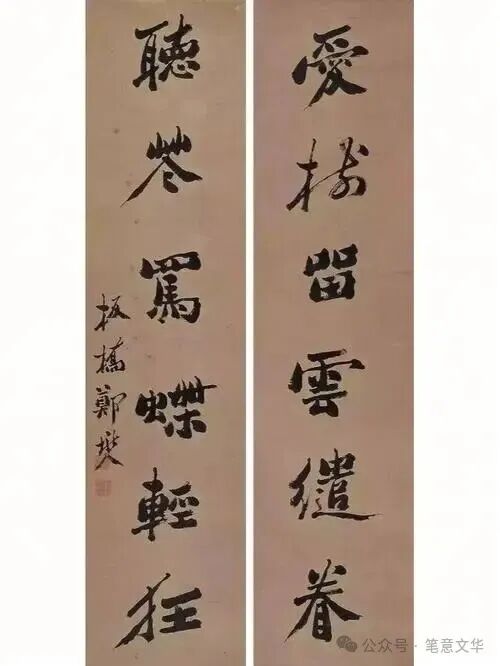 愛樹留雲繾眷
聽花罵蝶輕狂
板橋鄭燮
公众号·笔意文华